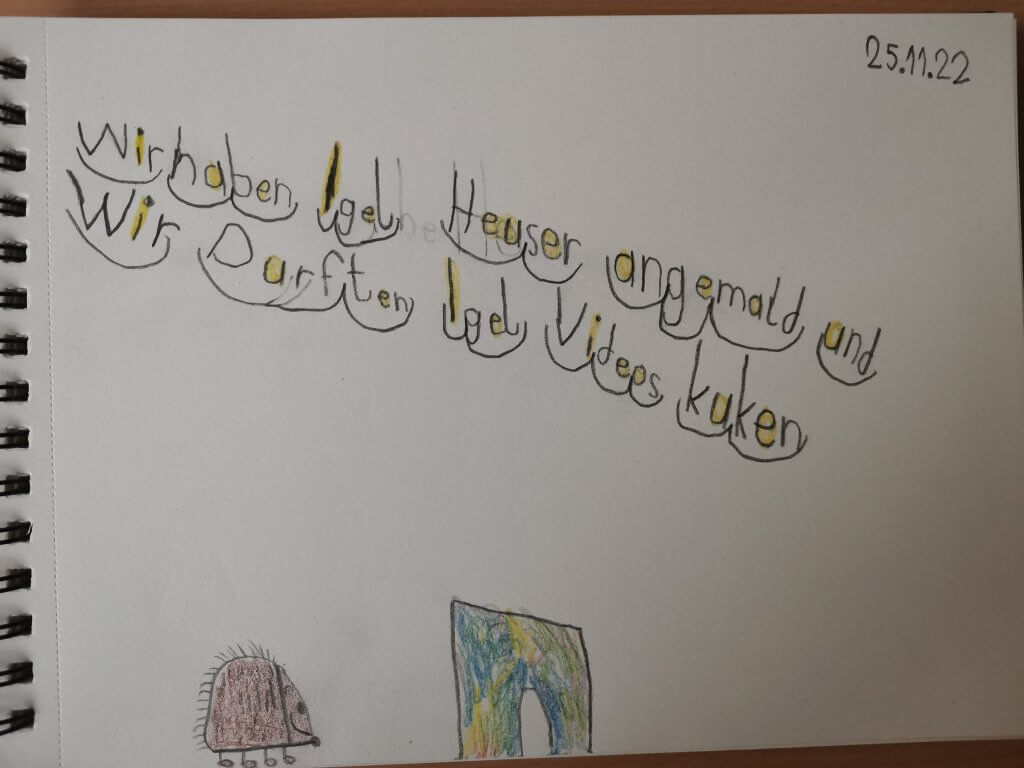 25.11.22
Wir haben Igel Heuser angemald und
Wir Darften Igel Videos kuken